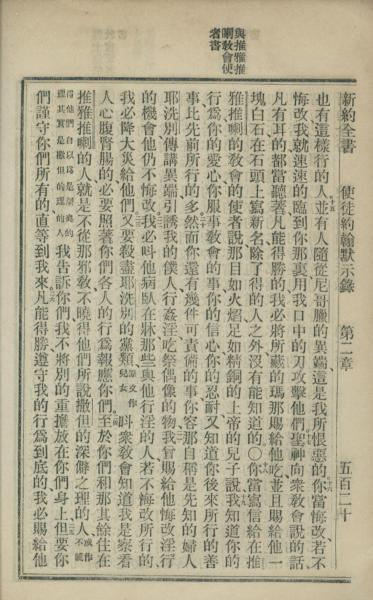 與推雅推
喇敎會使
者書
新約全書　使徒約翰默示錄　第二章　五百二十
也有這樣行的人並有人隨從尼哥臘的異端這是我所恨惡的你當悔改若不
悔改我就速速的臨到你那裏用我口中的刀攻擊他們聖神向衆敎會說的話
凡有耳的都當聽著凡能得勝的我必將所藏的瑪那賜給他吃並且賜給他一
塊白石在石頭上寫新名除了得的人之外沒有能知道的〇你當寫信給在推
雅推喇的敎會的使者說那目如火焰足如精銅的上帝的兒子說我知道你的
行爲你的愛心你服事敎會的事你的信心你的忍耐又知道你後來所行的善
事比先前所行的多然而你還有幾件可責備的事你容那自稱是先知的婦人
耶洗別傳講異端引誘我的僕人行姦淫吃祭偶像的物我曾賜給他悔改淫行
的機會他仍不悔改我必叫他病臥在牀那些與他行淫的人若不悔改所行的
我必降大災給他們又要殺盡耶洗別的黨類原文作兒女叫衆敎會知道我是察看
人心腹腎腸的必要照著你們各人的行爲報應你們至於你們和那其餘住在
推雅推喇的人就是不從那邪敎不曉得他們所說撒但的深僻之理的人或作不曉
得他們以爲是深奧的理其實是撒但的理的人我告訴你們我不將別的重擔放在你們身上但要你
們謹守你們所有的直等到我來凡能得勝遵守我的行爲到底的我必賜給他